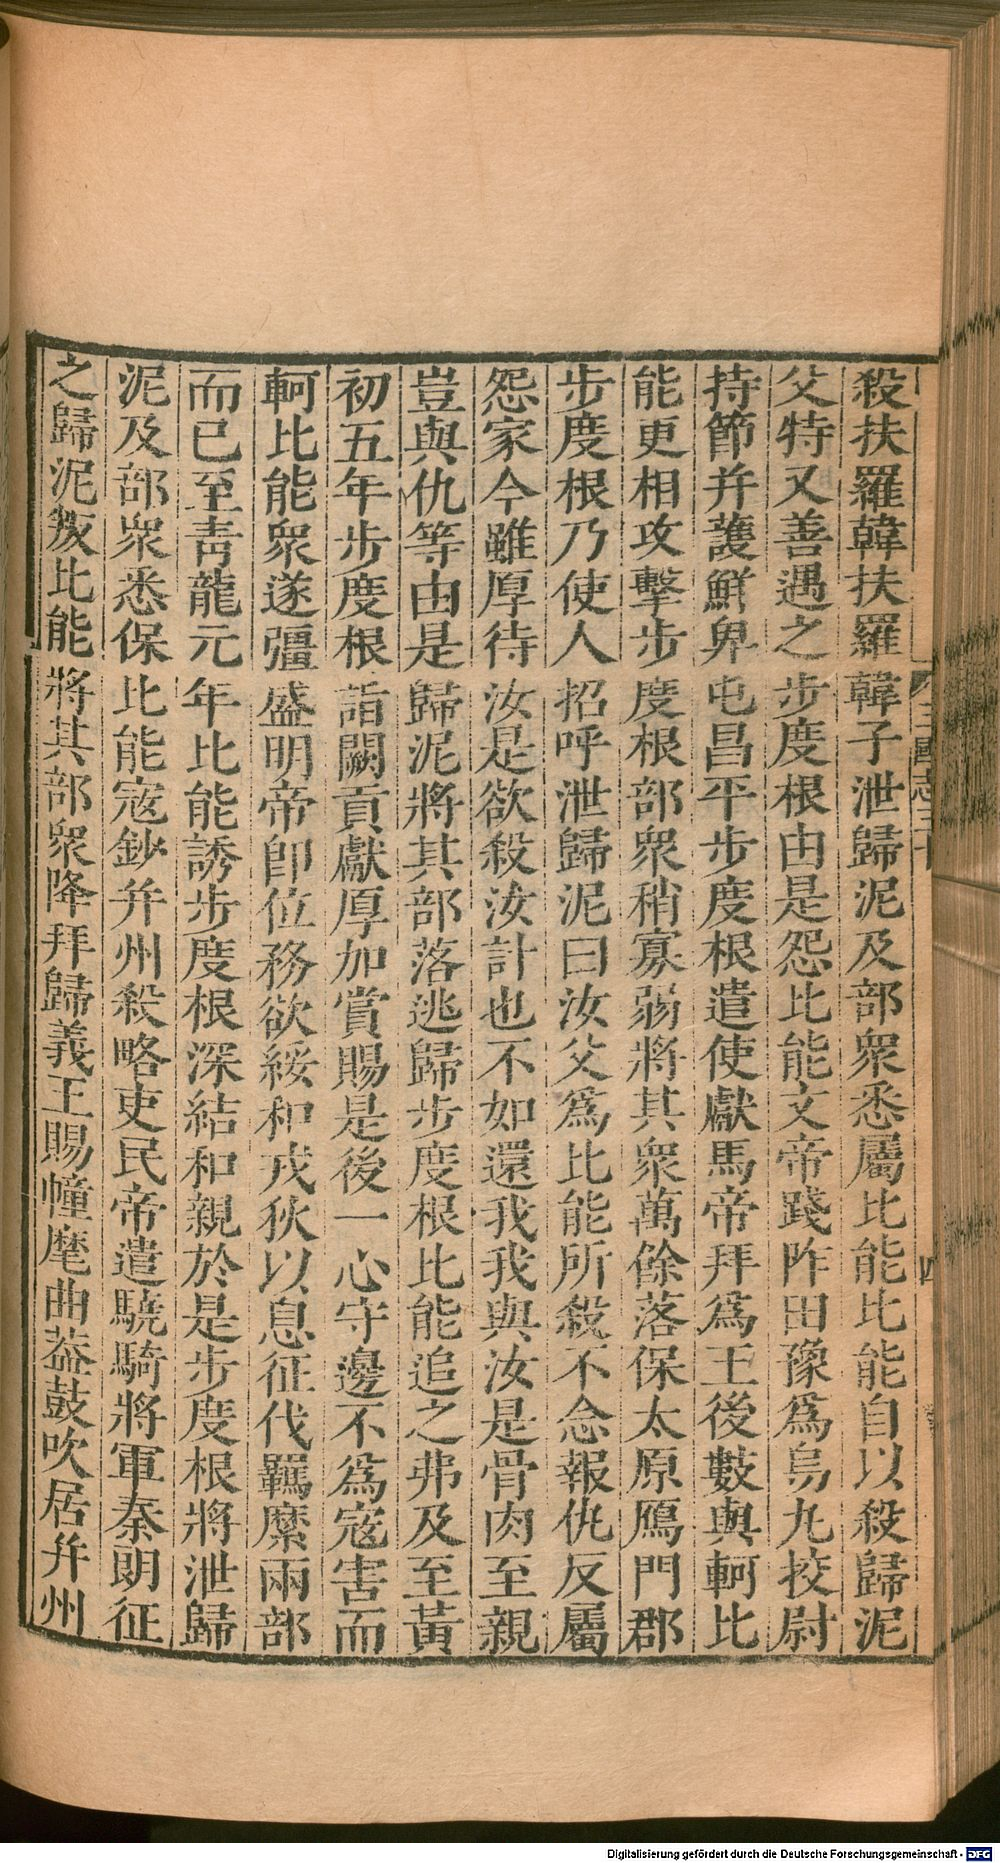 殺扶羅韓扶羅韓子泄歸泥及部衆悉屬比能比能自以殺歸泥
父特又善遇之步度根由是怨比能文帝踐阼田豫爲烏丸挍尉
持節并護鮮卑屯昌平步度根遣使獻馬帝拜爲王後數與軻比
能更相攻擊步度根部衆稍寡弱將其衆萬餘落保太原鴈門郡
步度根乃使人招呼泄歸泥曰汝父爲比能所殺不念報仇反屬
怨家今雖厚待汝是欲殺汝計也不如還我我與汝是骨肉至親
豈與仇等由是歸泥將其部落逃歸步度根比能追之弗及至黃
初五年步度根詣闕貢獻厚加賞賜是後一心守邊不爲寇害而
軻比能衆遂彊盛明帝卽位務欲綏和戎狄以息征伐羈縻兩部
而已至靑龍元年比能誘步度根深結和親於是步度根將泄歸
泥及部衆悉保比能寇鈔幷州殺略吏民帝遣驍騎將軍秦朗征
之歸泥叛比能將其部衆降拜歸義王賜幢麾曲葢鼓吹居幷州
三國志三十
四
Digitalisierung gefördert durch die Deutsche Forschungsgemeinschaft - DFG